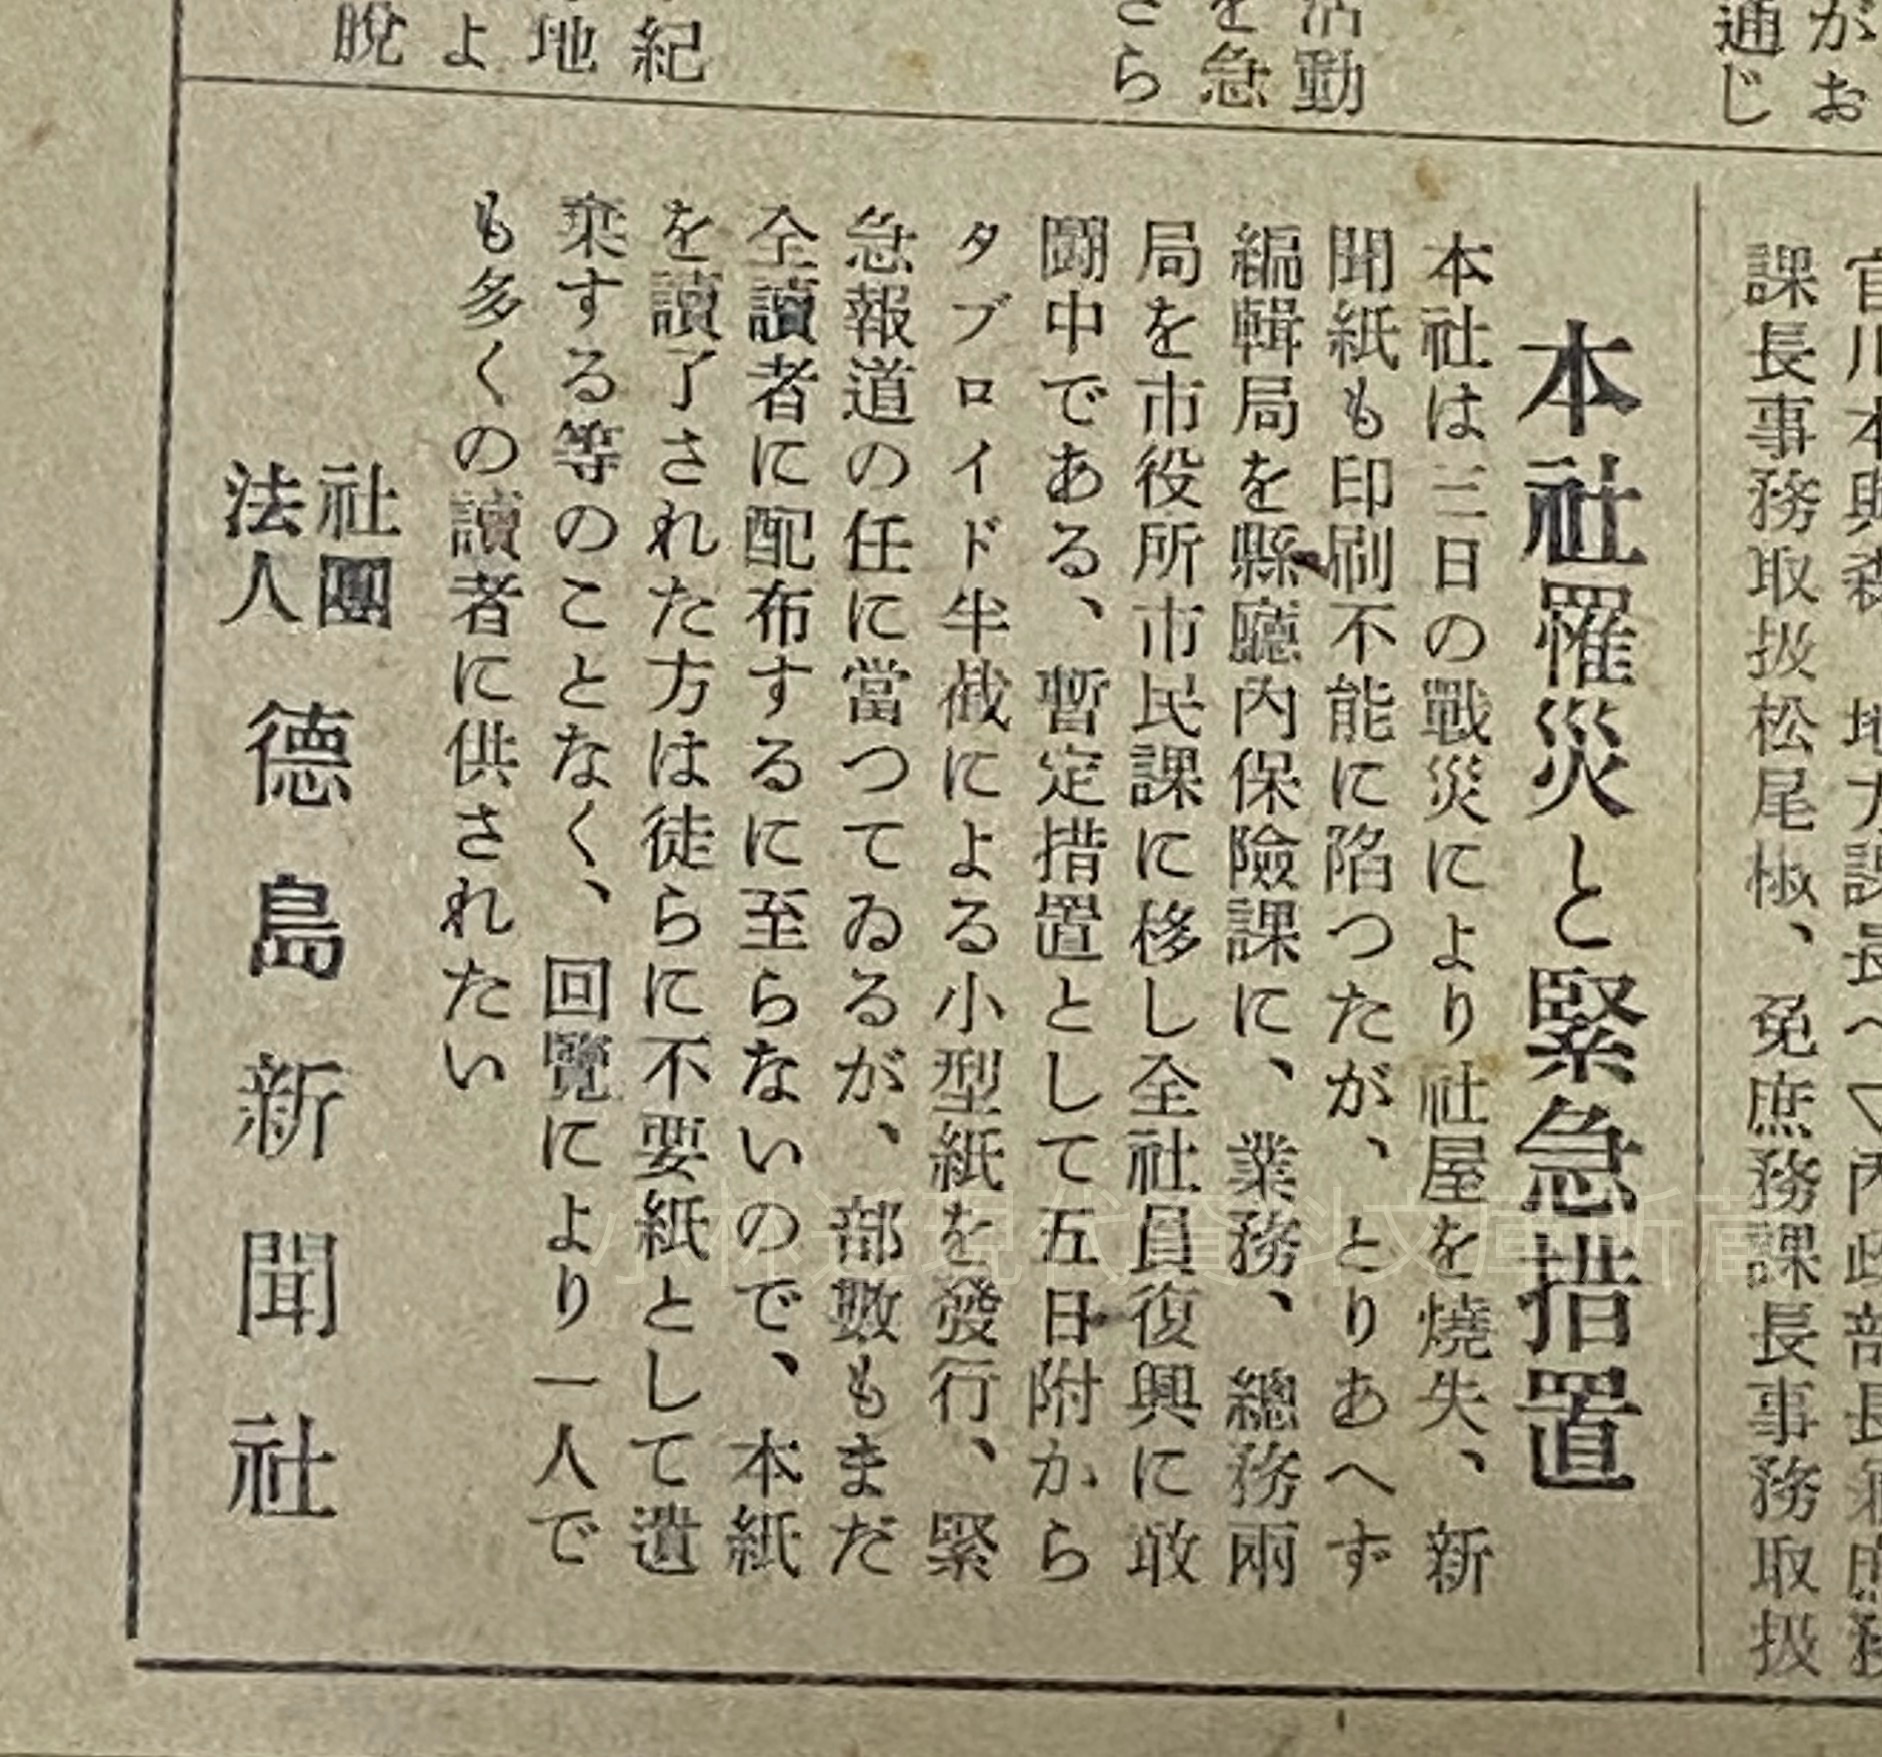 がお
通じ
活動
を急
さら
紀
地
よ
脫
課長事務取扱松尾椒、免庶務課長事務取扱
本社罹災と緊急措置
本社は三日の戰災により社屋を燒失、新
聞紙も印刷不能に陷つたが、とりあへず
編輯局を縣廳內保險課に、業務、總務兩
局を市役所市民課に移し全社員復興に敢
鬪中である、暫定措置として五日附から
タブロイド半截による小型紙を發行、緊
急報道の任に當つてゐるが、部數もまだ
全讀者に配布するに至らないので、本紙
を讀了された方は徒らに不要紙として遺
棄する等のことなく、回覽により一人で
も多くの讀者に供されたい
社團
法人
德島新聞社
小林近現代資料文庫所蔵